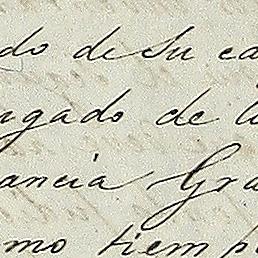 do de su ca
ngado de li
ancia Gra
mo tiemp